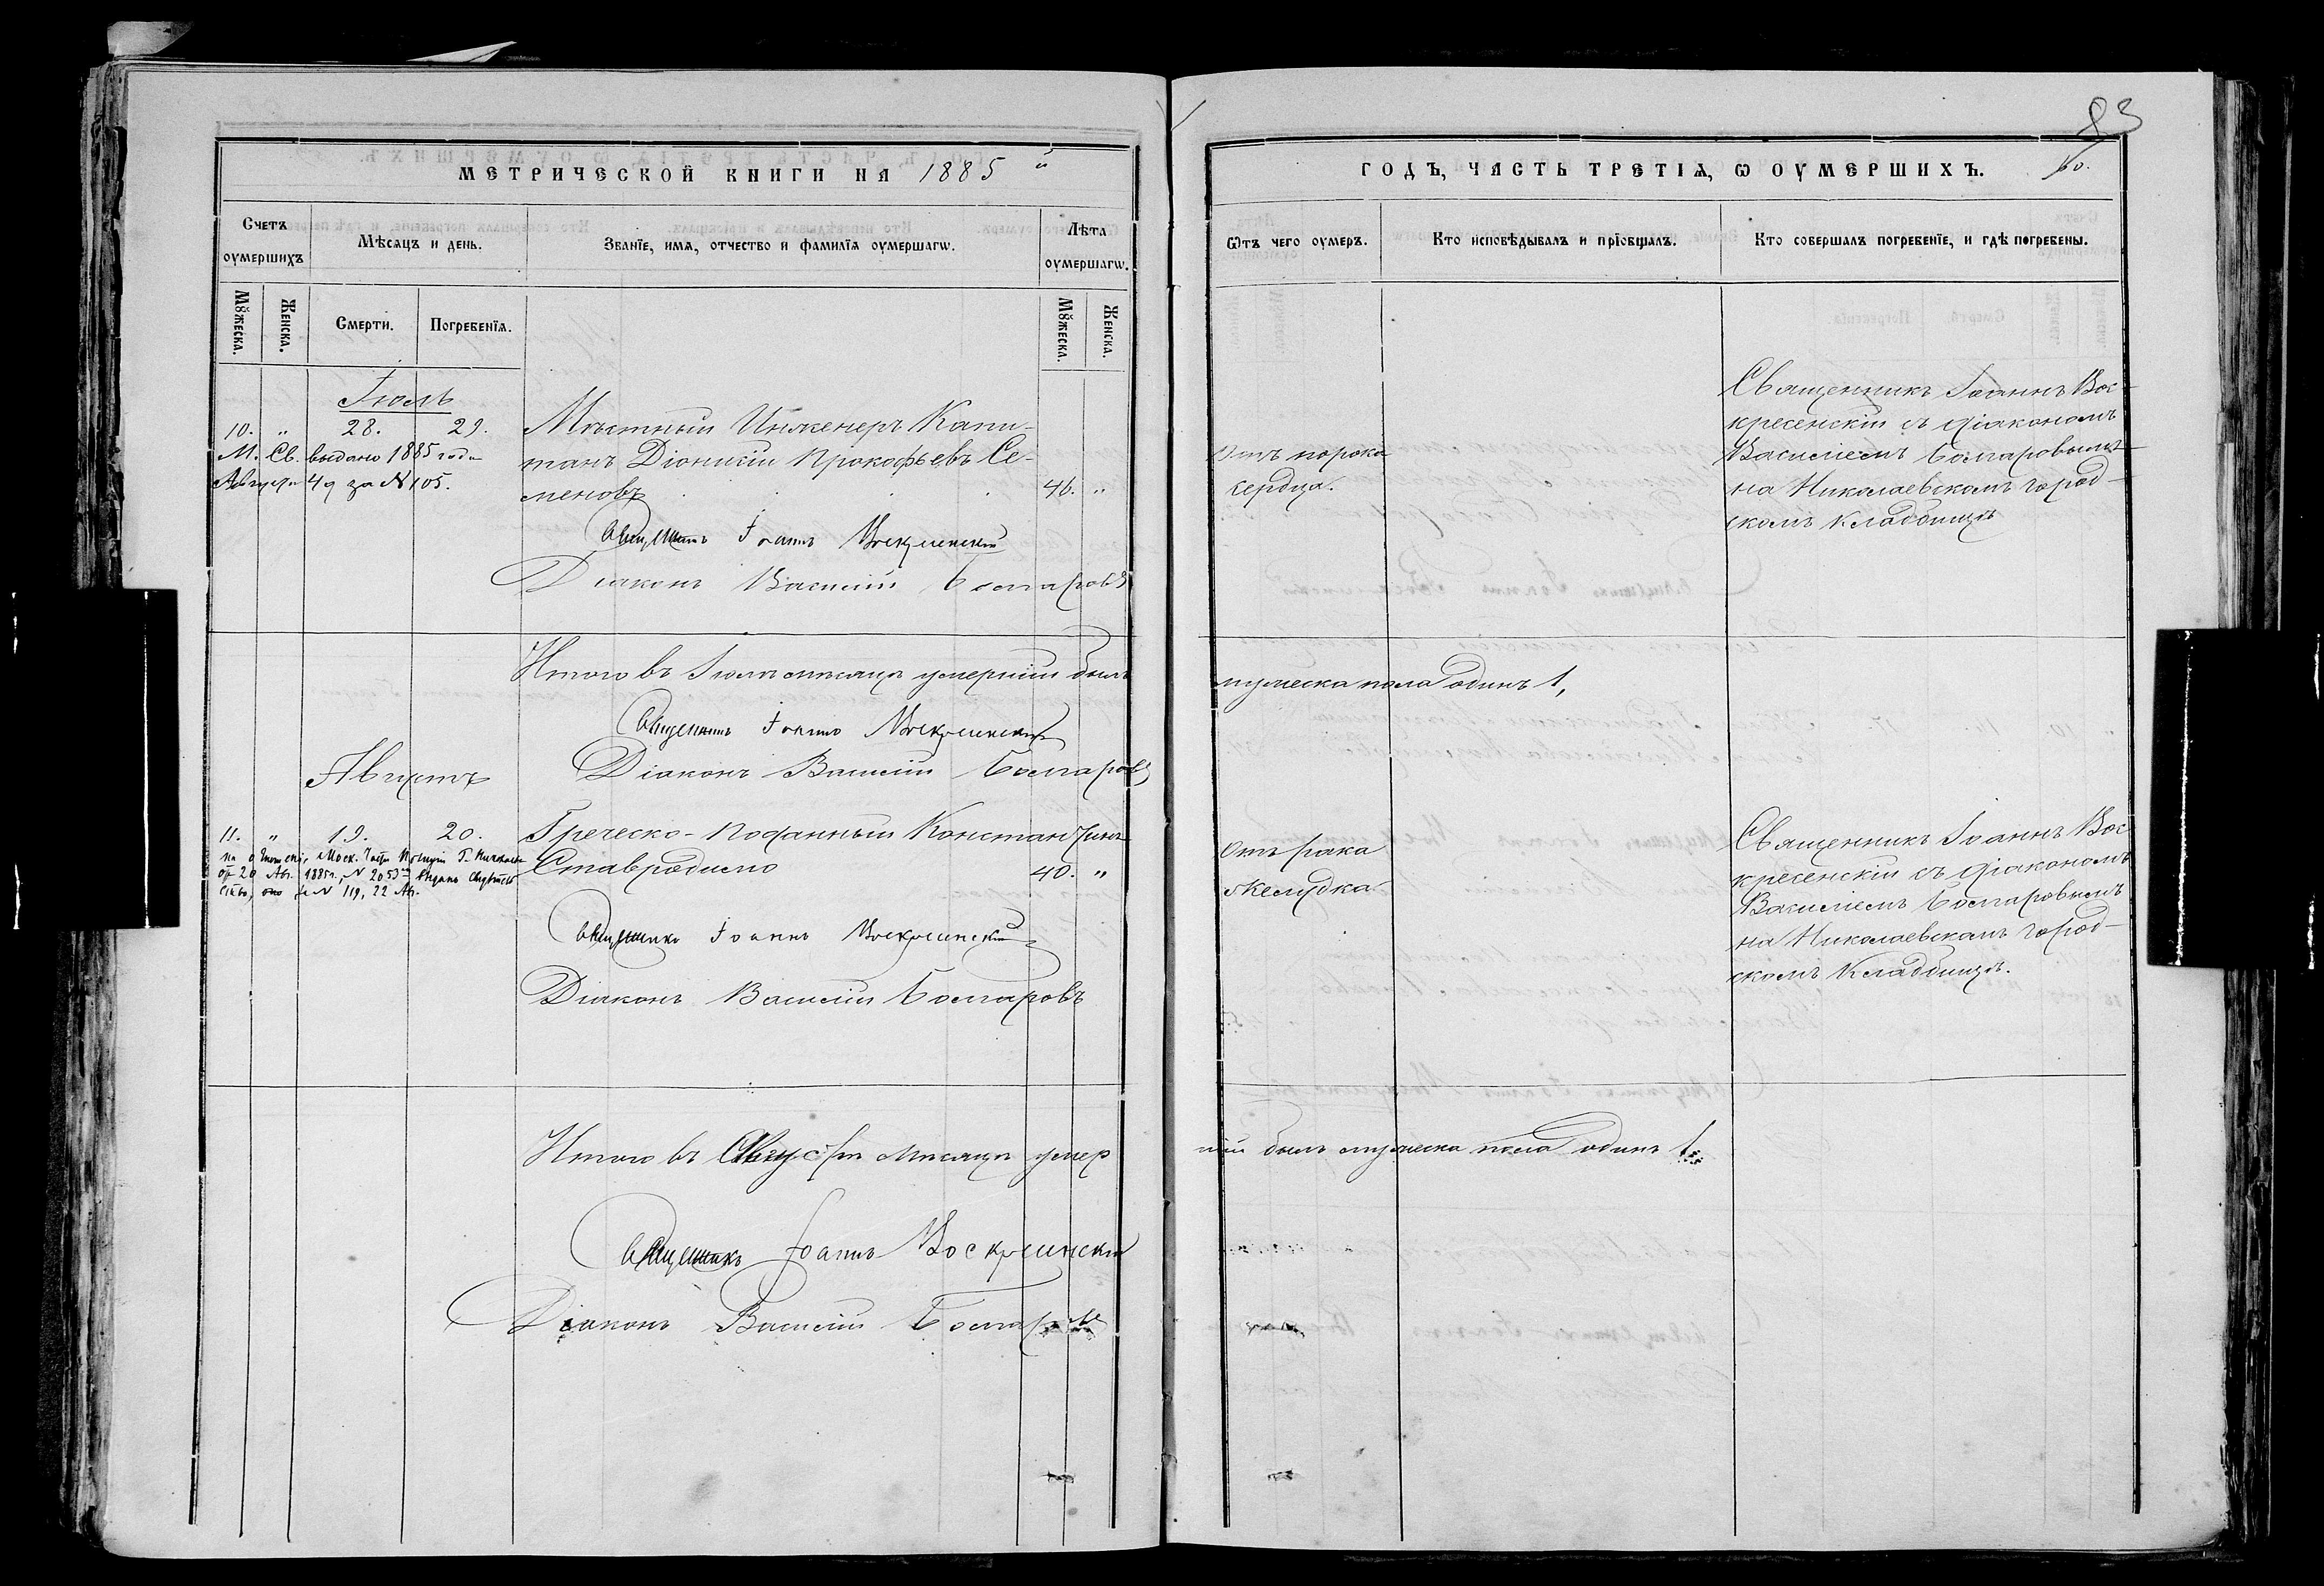 83
МЕТРИЧЕСКОЙ КНИГИ НА 1885 й
ГОДЪ, ЧАСТЬ ТРЕТІѦ, Ѡ ОУМЕРШИХЪ.
60.
Счетъ оумершихъ
Мѣсяцъ и день.
Званіе, имя, отчество и фамилія оумершагѡ.
Лѣта оумершагѡ.
Мꙋжеска.
Женска.
Смерти.
Погребенія.
Мꙋжеска.
Женска.
Ѿтъ чего оумеръ.
Кто исповѣдывалъ и пріобщалъ.
Кто совершалъ погребеніе, и гдѣ погребены.
Іюль
10. " 28. 29.
М. Св. выдано 1885 года
Августа 4 д за № 105.
Мѣстный Инженеръ Капи-
танъ Діонисій Прокофьевъ Се-
меновъ 46. "
Отъ порока
сердца.
Священникъ Іоаннъ Вос-
кресенскій съ діакономъ
Василіемъ Болгаровымъ
на Николаевскомъ город-
скомъ кладбищѣ
Священникъ Іоаннъ Воскресенскій
Діаконъ Василій Болгаровъ
Итого въ Іюлѣ мѣсяцѣ умершій былъ
мужеска пола одинъ 1,
Священникъ Іоаннъ Воскресенскій
Діаконъ Василій Болгаровъ
Августъ
11. " 19. 20.
Моск. Части Полиціи Г. Николаева
от 20 Авг. 1885 г. № 2053 выдано Свидѣтель
ство, за № 119, 22 Авг.
Греческо-подданный Константинъ
Ставродимо 40. "
Отъ рака
желудка.
Священникъ Іоаннъ Вос
кресенскій съ діакономъ
Василіемъ Болгаровымъ
на Николаевскомъ город-
скомъ кладбищѣ.
Священникъ Іоаннъ Воскресенскій
Діаконъ Василій Болгаровъ
Итого въ Августѣ мѣсяцѣ умер
шій былъ мужеска пола одинъ 1.
Священникъ Іоаннъ Воскресенскій
Діаконъ Василій Болгаровъ